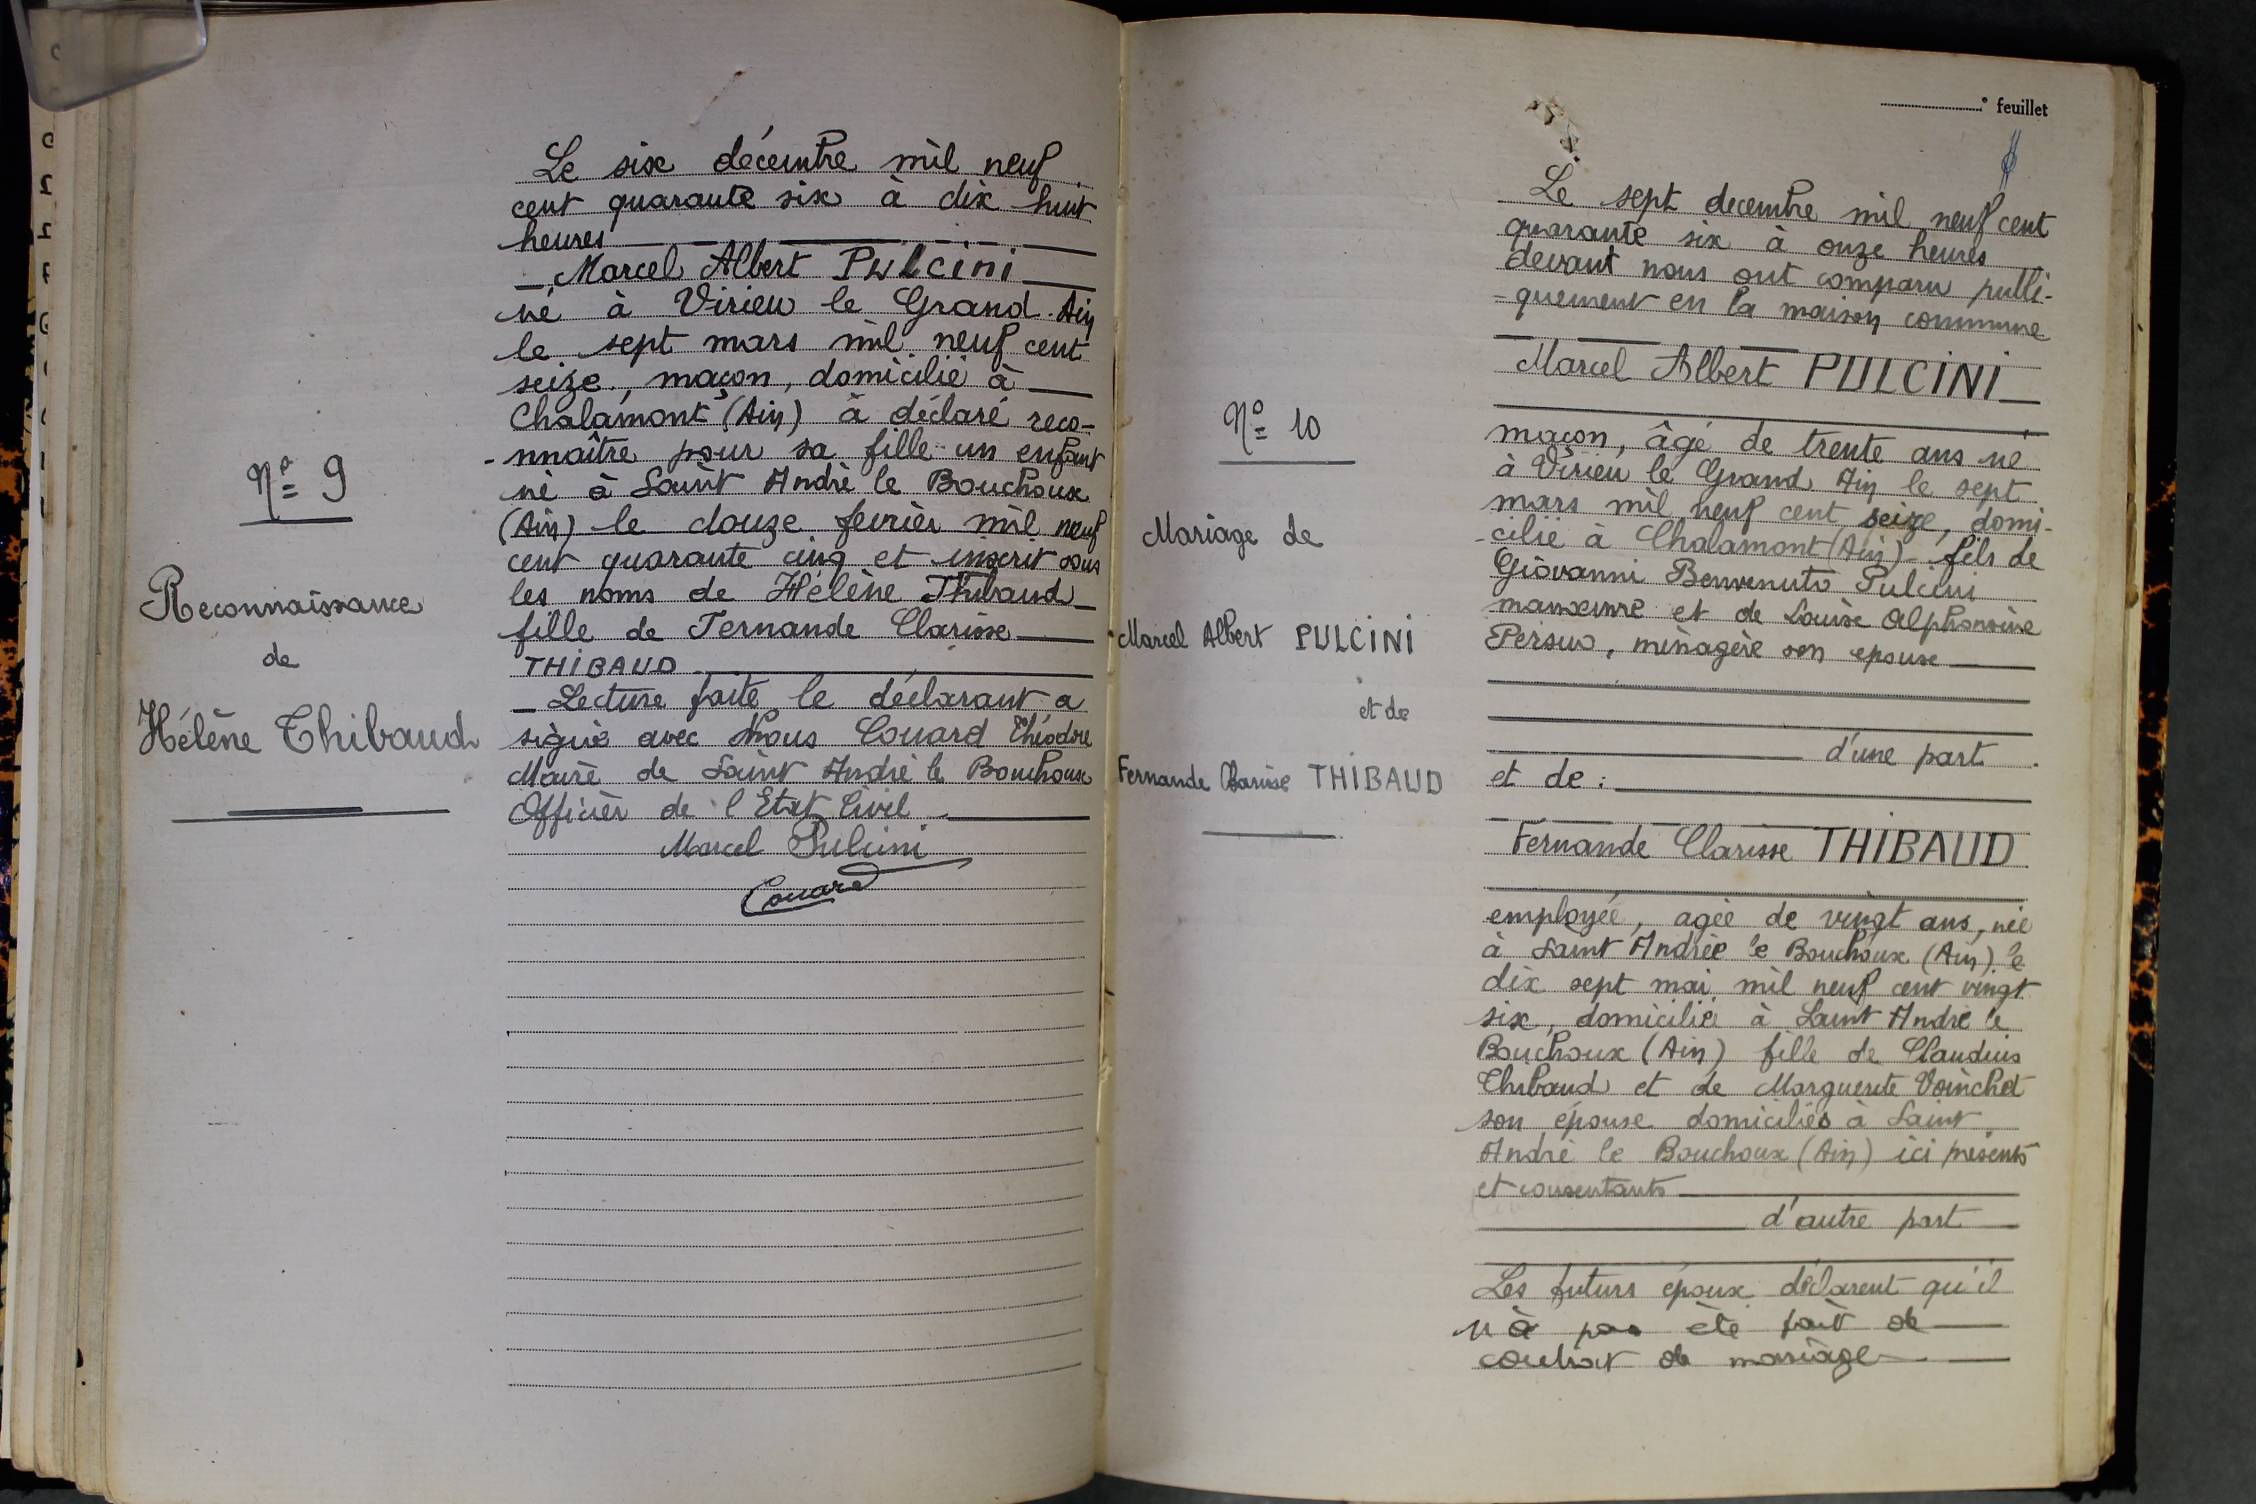 N° 9
Reconnaissance
de
Hélène Thibaud
Le six décembre mil neuf
cent quarante six à dix huit
heures
Marcel Albert PULCINI
né à Virieu le Grand Ain
le sept mars mil neuf cent
seize, maçon, domicilié à
Chalamont (Ain) à déclaré reco-
-nnaître pour sa fille un enfant
né à Saint André le Bouchoux
(Ain) le douze février mil neuf
cent quarante cinq et inscrit sous
les noms de Hélène Thibaud
fille de Fernande Clarisse
THIBAUD
Lecture faite le déclarant a
signé avec Nous Couard Théodore
Maire de Saint André le Bouchoux
Officier de l'Etat Civil
Marcel Pulcini
Couard
feuillet
N° 10
Mariage de
Marcel Albert PULCINI
et de
Fernande Clarisse THIBAUD
Le sept decembre mil neuf cent
quarante six à onze heures
devant nous ont comparu publi-
-quement en la maison commune
Marcel Albert PULCINI
maçon, âgé de trente ans né
à Virieu le Grand Ain le sept
mars mil neuf cent seize, domi-
-cilié à Chalamont (Ain) fils de
Giovanni Benvenuto Pulcini
et de Louise Alphonsine
, ménagère son epouse
d'une part
et de :
Fernande Clarisse THIBAUD
employée, agée de vingt ans, née
à Saint Andrée le Bouchoux (Ain) le
dix sept mai mil neuf cent vingt
six, domiciliée à Saint André le
Bouchoux (Ain) fille de Claudius
Thibaud et de Marguerite Voinchet
son épouse domiciliés à Saint
André le Bouchoux (Ain) ici présents
et consentants
d'autre part
Les futurs époux déclarent qu'il
n'à pas été fait de
contrat de mariage